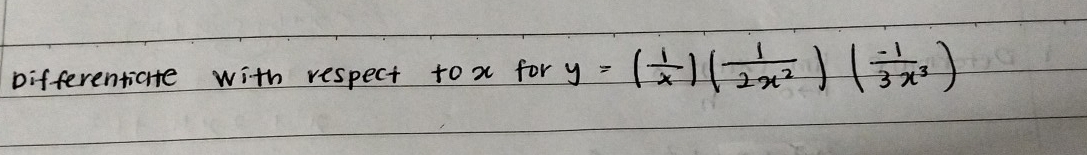 Differentiate with respect to x for y = (1/x)(1/2x²)(-1/3x³)